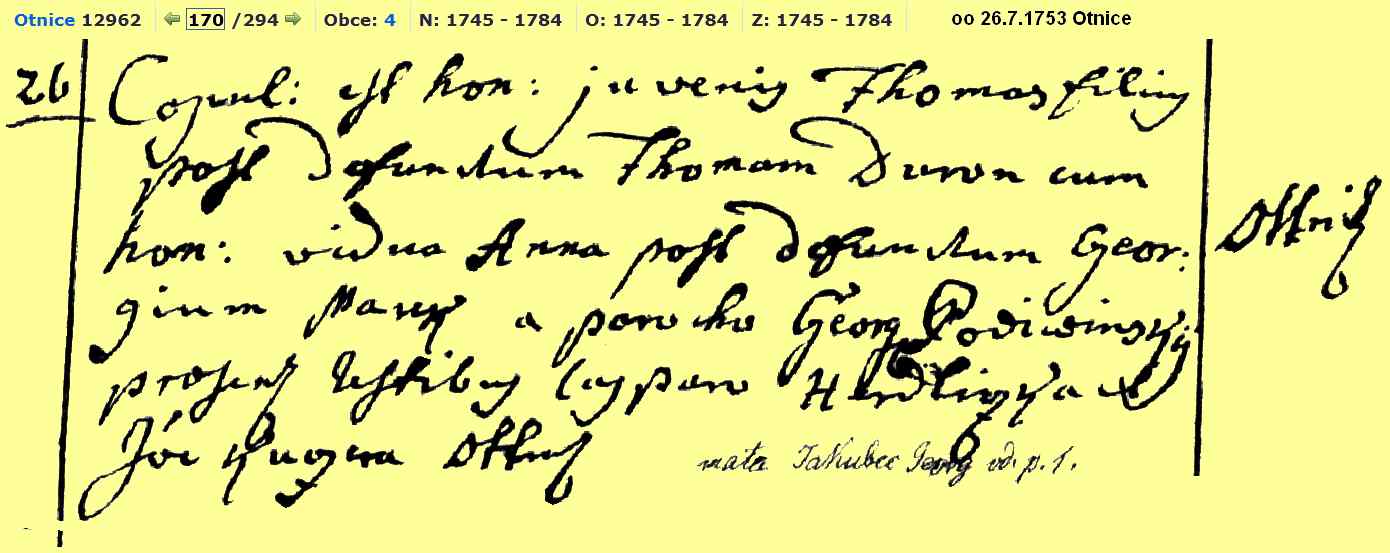 Otnice 12962 170 /294 Obce: 4 N: 1745 - 1784 O: 1745 - 1784 Z: 1745 - 1784 oo 26.7.1753 Otnice
26 Copul: est hon: juvenis Thomas filius
post defunctum Thomam Duron cum
hon: vidua Anna post defunctum Geor:
gium a parocho Georg Podiwinsky
testibus Casparo Herdliczka et
Kuczera
mata Jakubec Georg vd. p. 1.